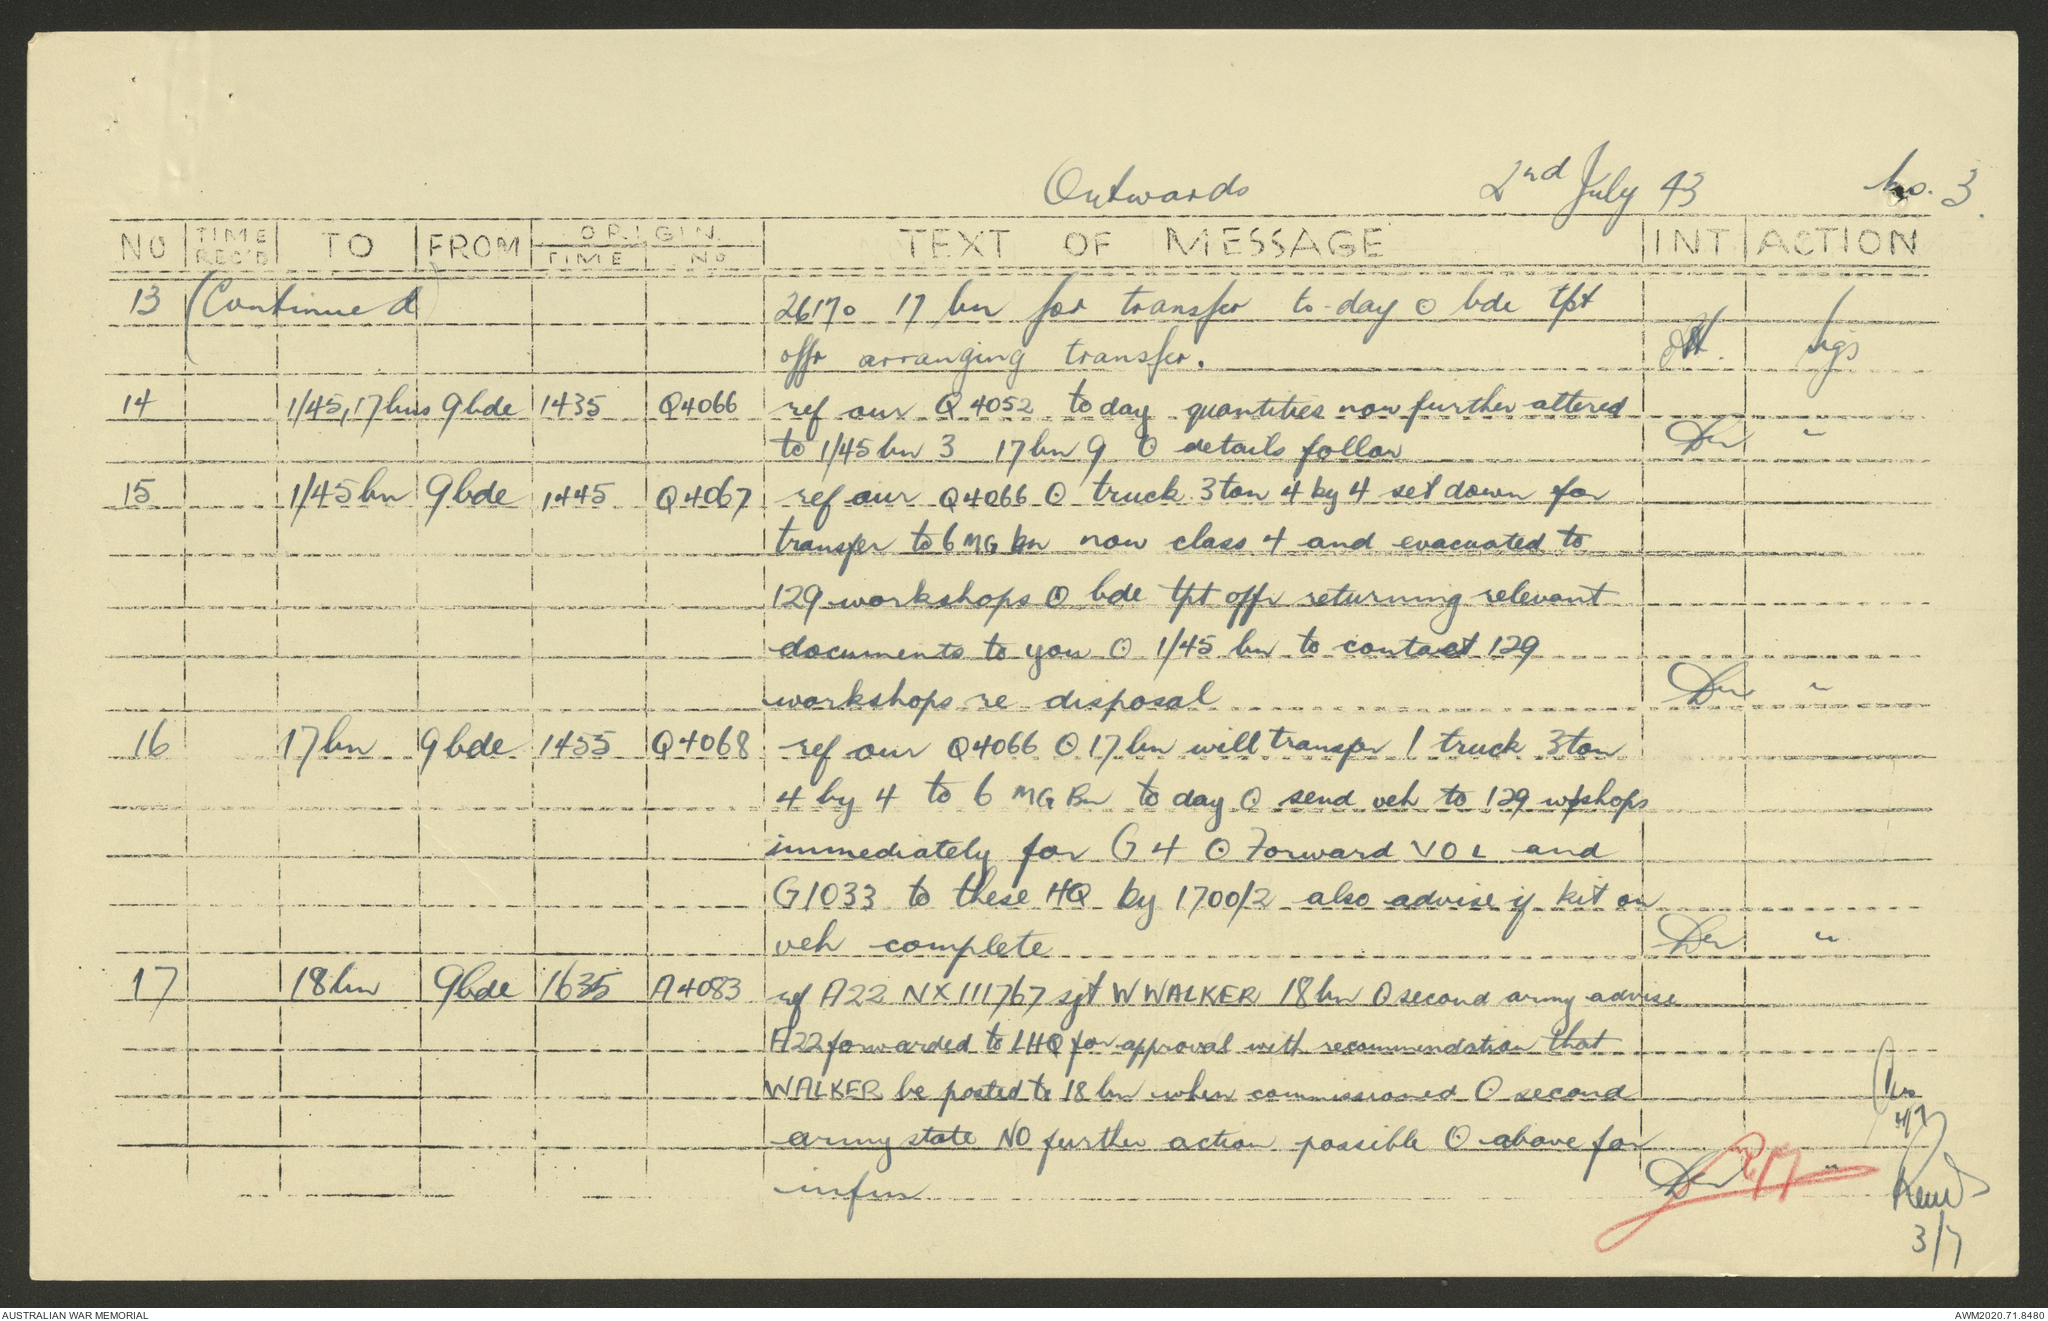 Outwards 2nd July 43 No. 3.
NO TIME REC'D TO FROM ORIGIN. TIME NO TEXT OF MESSAGE INT ACTION
13 (Continued) 26170 17 bn for transfer to-day ⊙ bde tpt
offr arranging transfer. sigs
14 1/45, 17 bns 9 bde 1435 Q4066 ref our Q4052 today quantities now further altered
to 1/45 bn 3 17 bn 9 ⊙ details follow "
15 1/45 bn 9 bde 1445 Q4067 ref our Q4066 ⊙ truck 3 ton 4 by 4 set down for
transfer to 6 MG bn now class 4 and evacuated to
129 workshops ⊙ bde tpt offr returning relevant
documents to you ⊙ 1/45 bn to contact 129
workshops re disposal "
16 17 bn 9 bde 1455 Q4068 ref our Q4066 ⊙ 17 bn will transfer 1 truck 3 ton
4 by 4 to 6 MG Bn to day ⊙ send veh to 129 w/shops
immediately for G 4 ⊙ Forward VOL and
G1033 to these HQ by 1700/2 also advise if kit on
veh complete "
17 18 bn 9 bde 1635 A4083 ref A22 NX111767 sjt W WALKER 18 bn ⊙ second army advise
A22 forwarded to LHQ for approval with recommendation that
WALKER be posted to 18 bn when commissioned ⊙ second
army state NO further action possible ⊙ above for
infm "
3/7
AUSTRALIAN WAR MEMORIAL AWM2020.71.8480